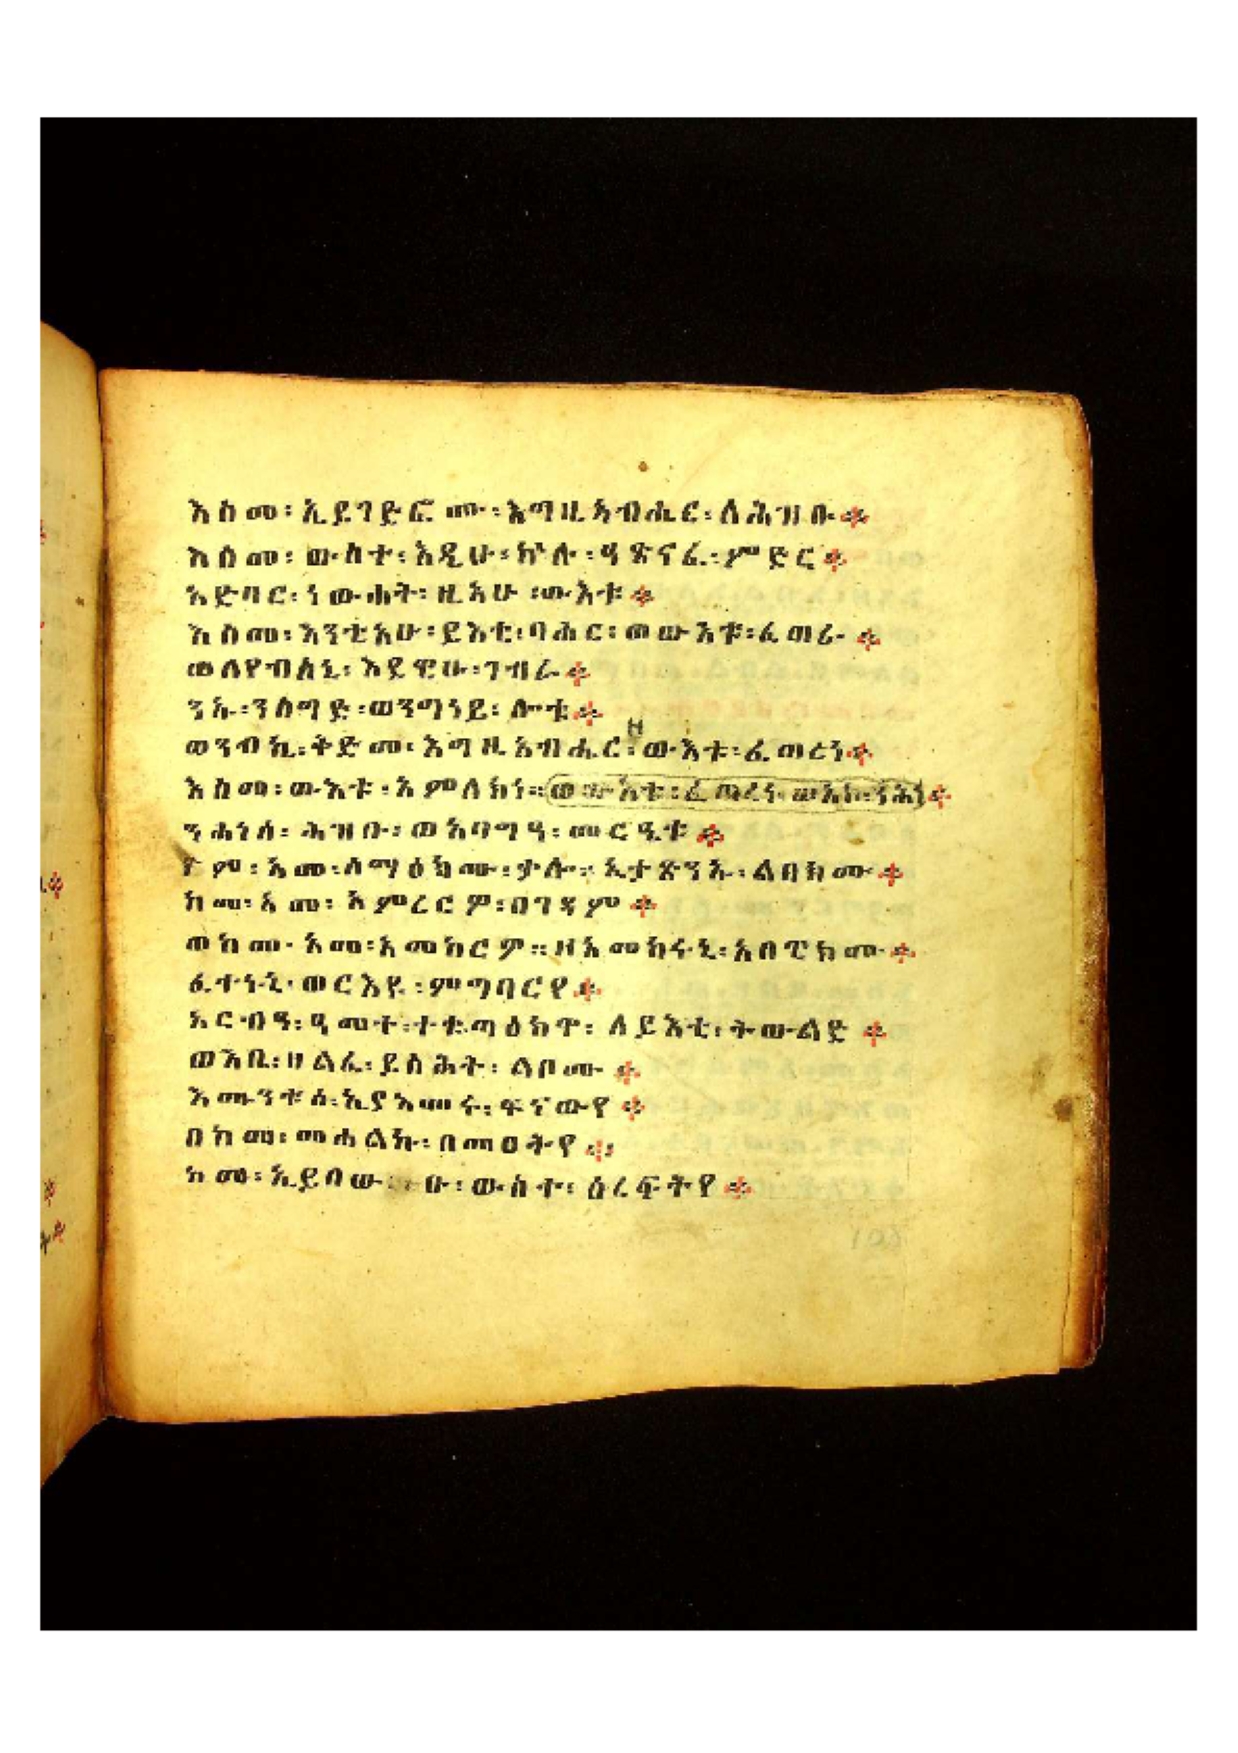 እስመ፡ ኢይገድፎሙ፡ እግዚአብሔር፡ ለሕዝቡ፨
እስመ፡ ውስተ፡ እዲሁ፡ ኵሉ፡ ዓጽናፈ፡ ምድር፨
አድባር፡ ነውሐት፡ ዚአሁ፡ ውእቱ፨
እስመ፡ እንቲአሁ፡ ይእቲ፡ ባሕር፡ ወውእቱ፡ ፈጠራ፨
ወለየብስኒ፡ እደዊሁ፡ ገብራ፨
ንኡ፡ ንስግድ፡ ወንግነይ፡ ሎቱ፨
ወንብኪ፡ ቅድመ፡ እግዚአብሔር፡ ዘውእቱ፡ ፈጠረነ፨
እስመ፡ ውእቱ፡ አምላክነ። ወውእቱ፡ ፈጠረነ፡ ወአኮ፡ ንሕነ፨
ንሕነሰ፡ ሕዝቡ፡ ወአባግዓ፡ መርዔቱ፨
ዮም፡ እመ፡ ሰማዕክሙ፡ ቃሎ። ኢታጽንኡ፡ ልበክሙ፨
ከመ፡ አመ፡ አምረርዎ፡ በገዳም፨
ወከመ፡ አመ፡ አመከርዎ። ዘአመከሩኒ፡ አበዊክሙ፨
ፈተኑኒ፡ ወርእዩ፡ ምግባርየ፨
አርብዓ፡ ዓመተ፡ ተቈጣዕክዋ፡ ለይእቲ፡ ትውልድ፨
ወእቤ፡ ዘልፈ፡ ይስሕት፡ ልቦሙ፨
እሙንቱሰ፡ ኢያአመሩ፡ ፍናውየ፨
በከመ፡ መሐልኩ፡ በመዐትየ፨
ከመ፡ ኢይበውኡ፡ ውስተ፡ ዕረፍትየ፨